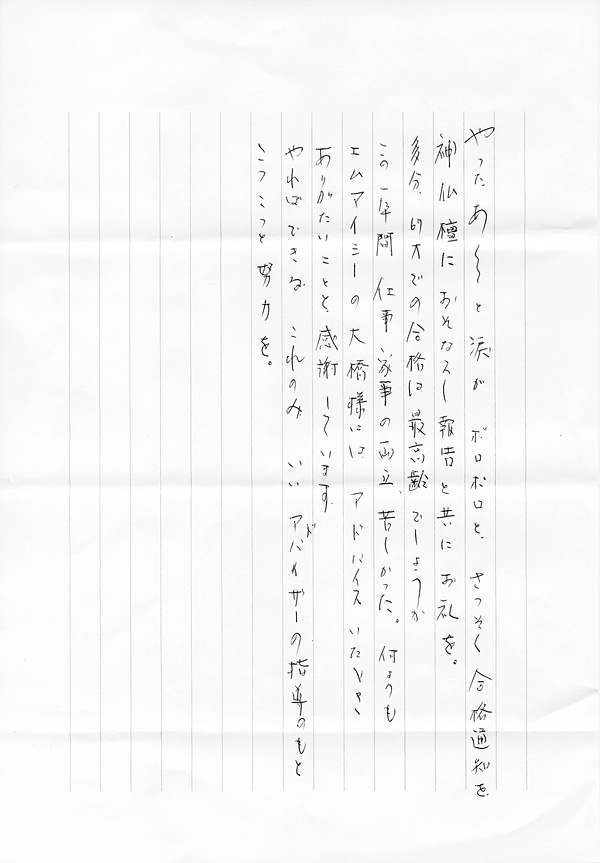 やったあ〜と 涙が ボロボロと、さっそく 合格通知を
神仏壇に おそなえし 報告と共に お礼を。
多分、的大での合格は最高齢でしょうか
この一年間 仕事 家事の両立、苦しかった。何よりも
エムアイシーの大橋様には アドバイスいただき
ありがたいことと 感謝しています。
やればできる これのみ いい アドバイザーの指導のもと
こつこつと 努力を。